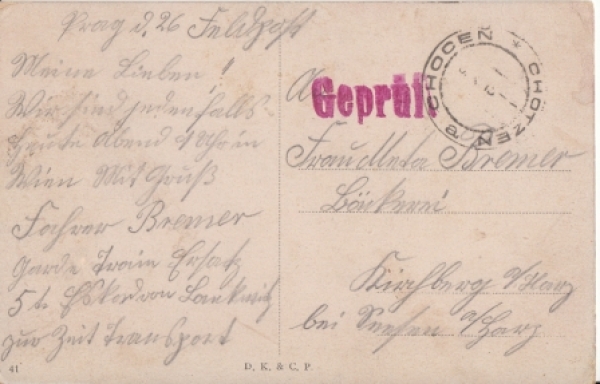 Prag d. 26 Feldpost
Meine Lieben!
Wir sind jedenfalls
heute Abend 9 Uhr in
Wien Mit Gruß
Fahrer Bremer
Garde Train Ersatz
5 te Eskadron Lankwitz
zur Zeit Transport
41
D. K. & C. P.
An
Geprüft.
CHOCEN * CHOTZEN
Frau Meta Bremer
Bäckerei
Kirchberg a/Harz
bei Seesen a/Harz